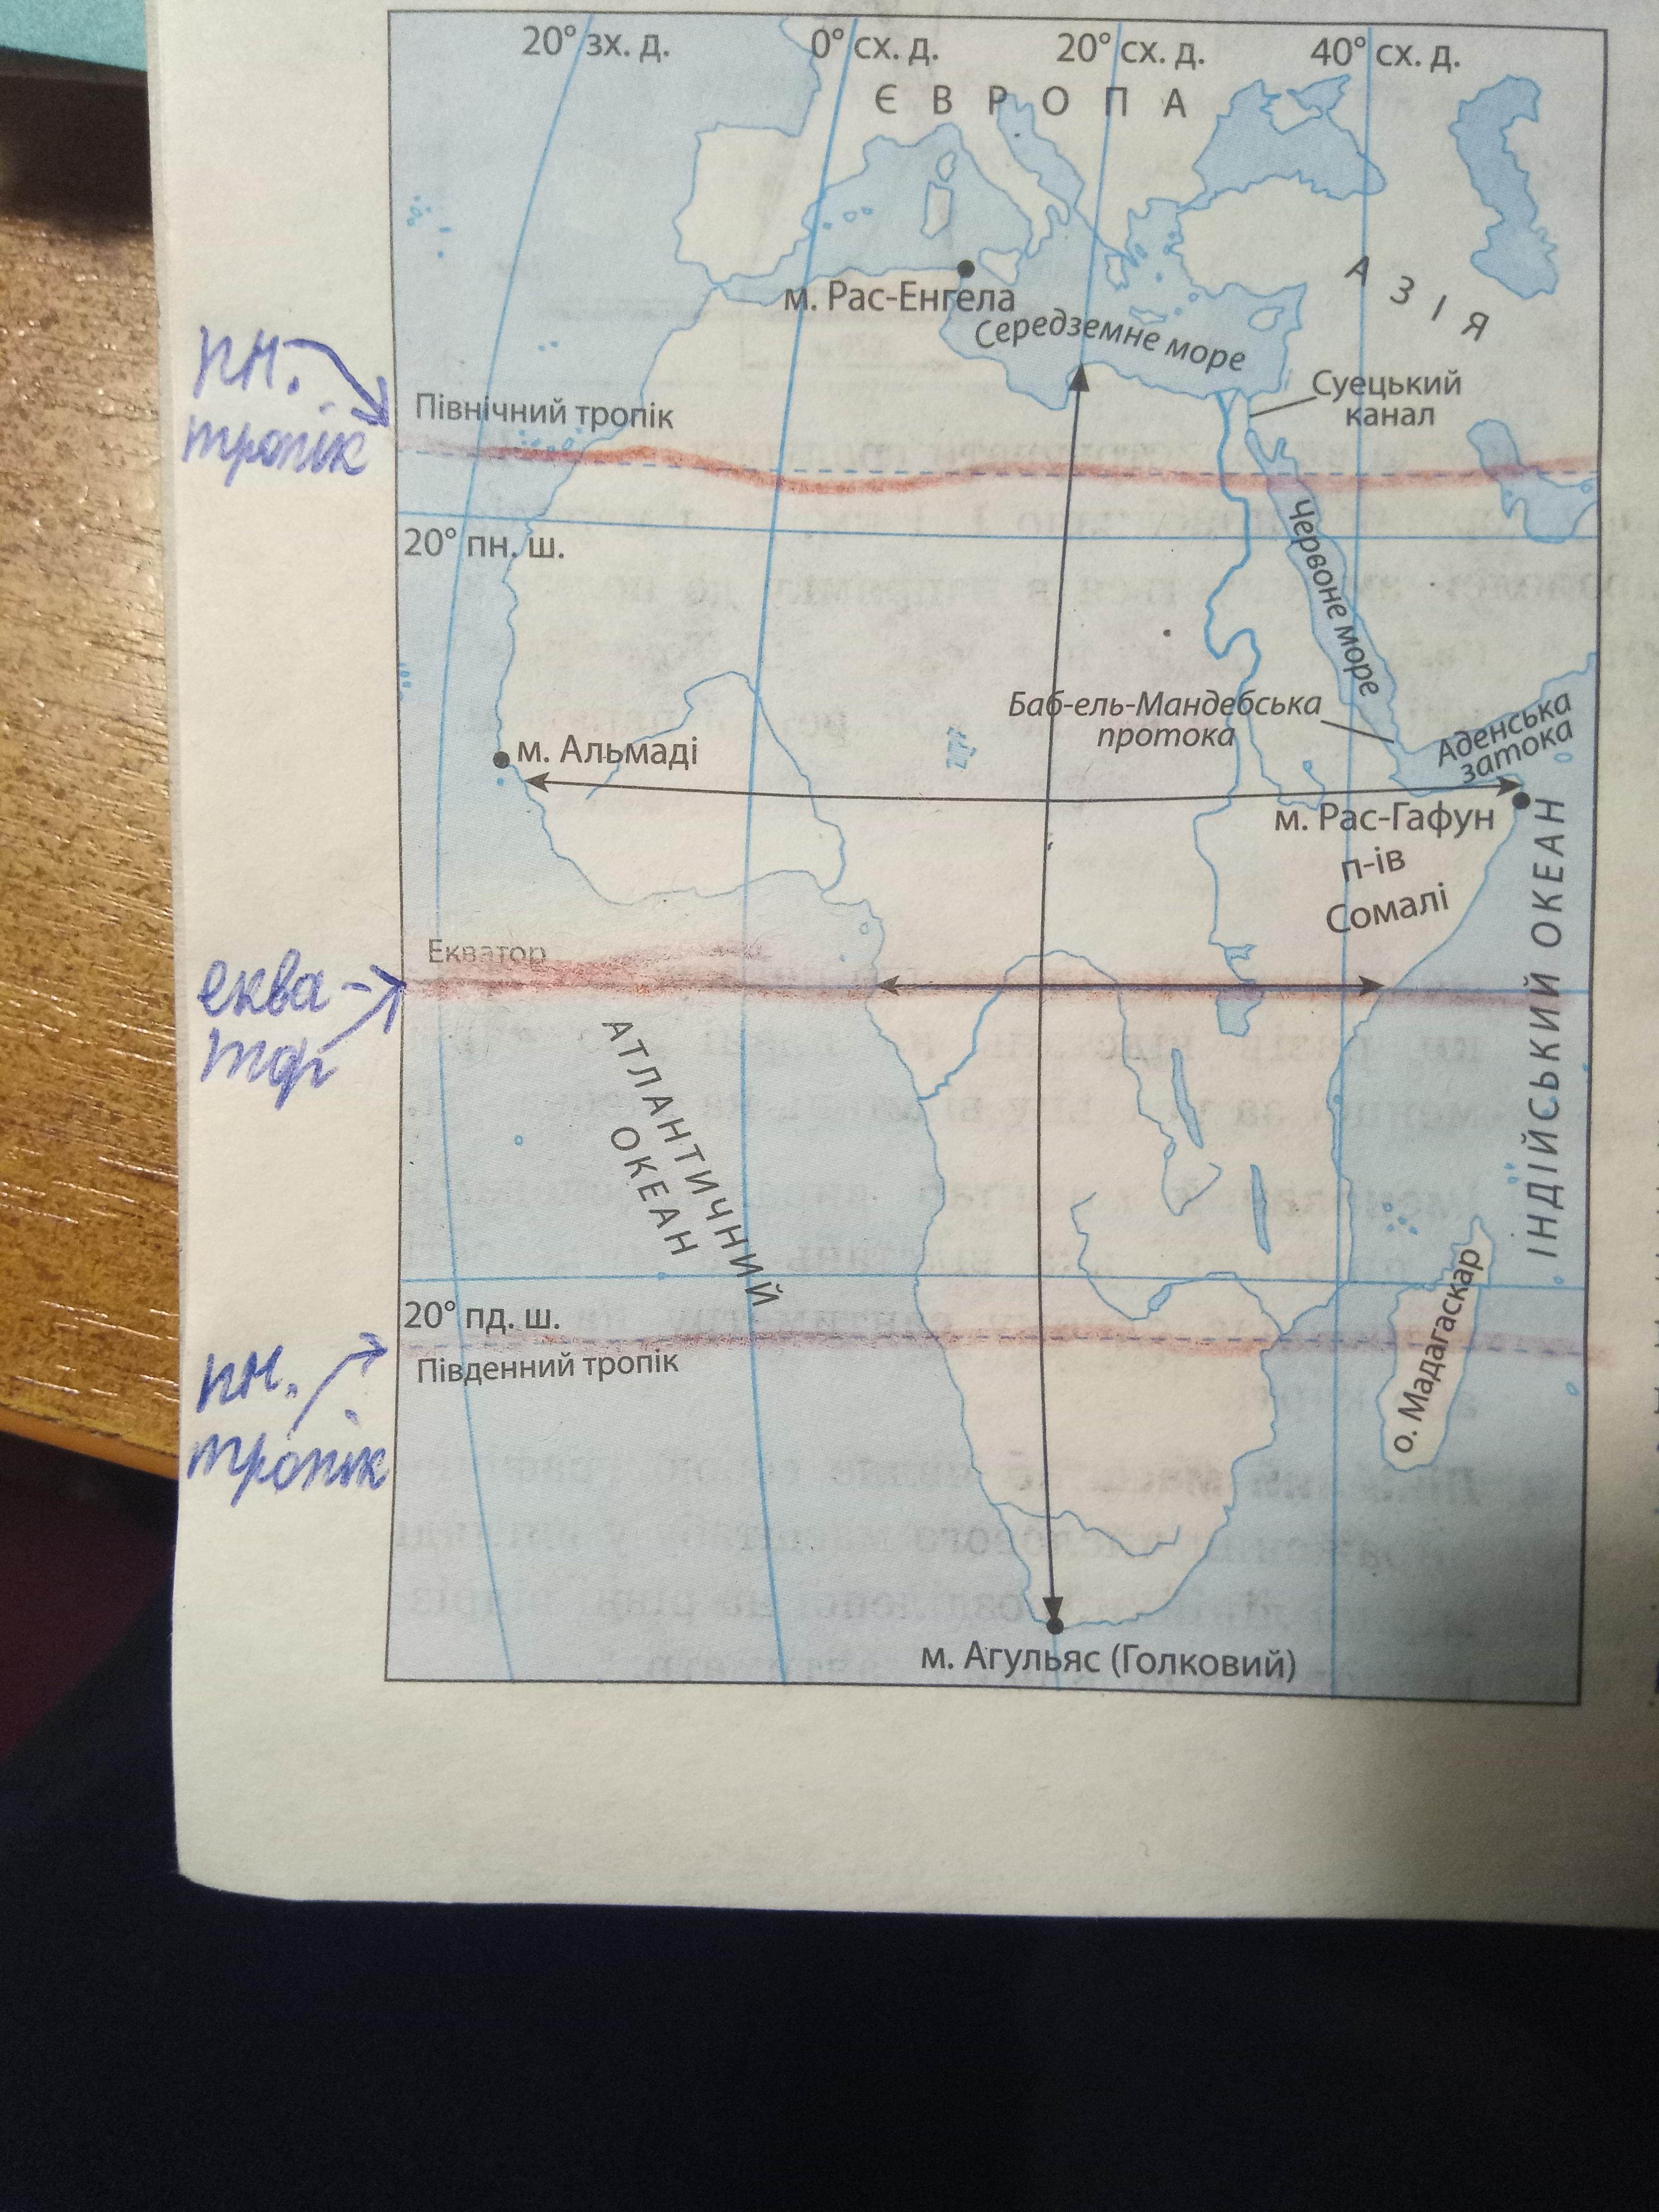 20° зх. д.
0° сх. д.
20° сх. д.
40° сх. д.
ЄВРОПА
АЗІЯ
м. Рас-Енгела
Середземне море
Суецький
канал
пн.
тропік
Північний тропік
20° пн. ш.
Червоне море
Баб-ель-Мандебська
протока
Аденська
затока
м. Альмаді
м. Рас-Гафун
п-ів
Сомалі
ІНДІЙСЬКИЙ ОКЕАН
еква
тор
Екватор
АТЛАНТИЧНИЙ
ОКЕАН
20° пд. ш.
пн.
тропік
Південний тропік
о. Мадагаскар
м. Агульяс (Голковий)